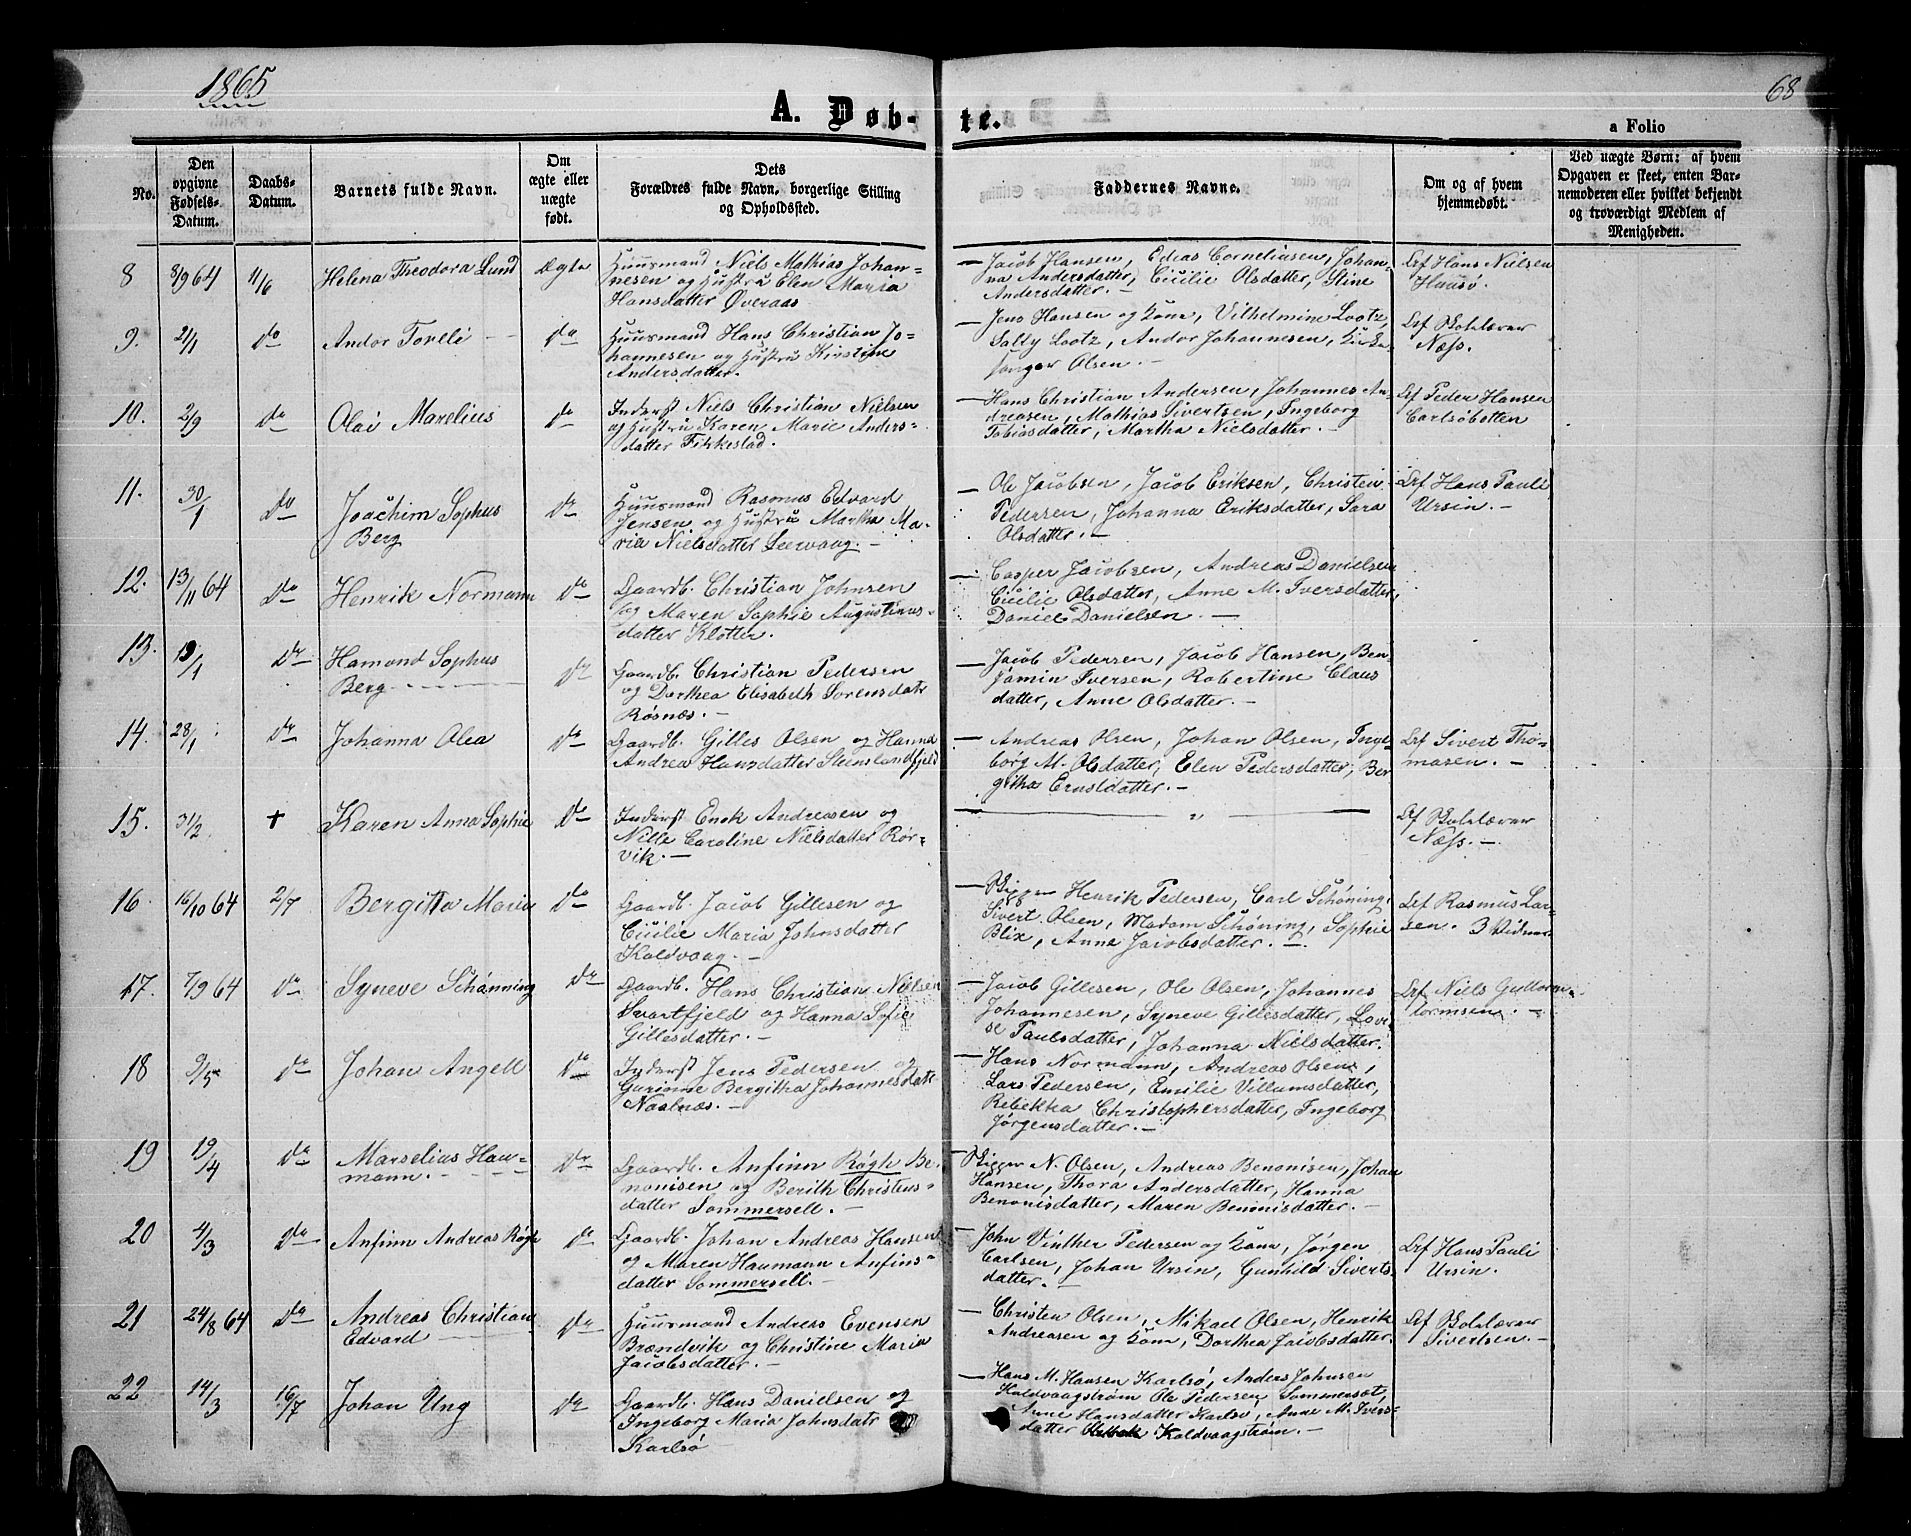 1865
68
A. Døb-
te.
a Folio
No.
Den
opgivne
Fødsels-
Datum.
Daabs-
Datum.
Barnets fulde Navn.
Om
ægte eller
uægte
født.
Dets
Forældres fulde Navn, borgerlige Stilling
og Opholdssted.
Faddernes Navne.
Om og af hvem
hjemmedøbt.
Ved uægte Børn: af hvem
Opgaven er skeet, enten Bar-
nemoderen eller hvilket bekjendt
og troværdigt Medlem af
Menigheden.
8 8/9 64 11/6 Helena Theodora Lund Ægte
Huusmand Niels Mathias Johan-
nesen og Hustru Elen Maria
Hansdatter Øveraas
— Jacob Hansen, Edias Corneliusen, Johan-
na Andersdatter, Cicilie Olsdatter, Stine
Andersdatter. —
Hans Nielsen
9. 21/1 do Andor Toreli — do
Huusmand Hans Christian Jo-
hannesen og Hustru Kirstine
Andersdatter.
— Jens Hansen og Kone, Vilhelmine Lootz,
Sally Lootz, Andor Johannesen, Kirke-
sanger Olsen. —
Næss.
10. 2/9 do Olai Marelius do
Inderst Niels Christian Nielsen
og Hustru Karen Marie Anders-
datter Fikkestad.
— Hans Christian Andersen, Johannes An-
dreasen, Mathias Sivertsen, Ingeborg
Tobiasdatter, Martha Nielsdatter. —
Peder Hansen
Carlsøbotten
11. 30/1 do Joachim Sophus
Berg
do
Huusmand Rasmus Edvard
Jensen og Hustru Martha Ma-
ria Nielsdatter Leervaag. —
— Ole Jacobsen, Jacob Eriksen, Christen
Pedersen, Johanna Eriksdatter, Sara
Olsdatter. —
Hans Pauli
Ursin. —
12. 13/11 64 do Henrik Normann do
Gaardb. Christian Johnsen
og Maren Sophie Augustinus-
datter Klotter.
— Casper Jacobsen, Andreas Danielsen
Cicilie Olsdatter, Anne M. Iversdatter,
Daniel Danielsen. —
13. 19/1 do Hamond Sophus
Berg
do
Gaardb. Christian Pedersen
og Dorthea Elisabeth Sorensdatr
Røsnæs. —
— Jacob Pedersen, Jacob Hansen, Ben-
jamin Iversen, Robertine Claus
datter, Anne Olsdatter. —
14. 28/1 do Johanna Olea do
Gaardb. Gilles Olsen og Hanna
Andrea Hansdatter Steinslandfjeld
— Andreas Olsen, Johan Olsen, Inge-
borg M. Olsdatter, Elen Pedersdatter, Ber
githa Ernstdatter. —
Sivert Tho-
masen. —
15. 31/2 + Karen Anna Sophie do
Inderst Enok Andreasen og
Nille Caroline Nielsdatter Rør-
vik. —
— „ —
Næss. —
16. 16/10 64 2/7 Bergitta Maria do
Gaardb. Jacob Gillesen og
Cicilie Maria Johnsdatter
Koldvaag. —
— Henrik Pedersen, Carl Schøning,
Sivert Olsen, Madam Schøning, Sophie
Blix, Anne Jacobsdatter. —
Rasmus Lar-
sen.
17. 7/9 64 do Syneve Schønning do
Gaardb. Hans Christian Nielsen
Svartfjeld og Hanna Sofie
Gillesdatter. —
— Jacob Gillesen, Ole Olsen, Johannes
Johannesen, Syneve Gillesdatter, Lovi-
se Paulsdatter, Johanna Nielsdatter.
Niels
18 9/5 do Johan Angell do
Inderst Jens Pedersen og
Gurinne Bergitha Johannesdatr
— Hans Normann, Andreas Olsen,
Lars Pedersen, Emilie Villumsdatter,
Rebekka Christophersdatter, Ingeborg
Jørgensdatter. —
19 19/4 do Marselius Hau-
mann. —
do
Gaardb. Anfinn Røgh Be-
nonisen og Berith Christens-
datter Sommersell. —
— N. Olsen, Andreas Benonisen, Johan
Hansen, Thora Andersdatter, Hanna
Benonisdatter, Maren Benonisdatter. —
20 4/3 do Anfinn Andreas Røgh do
Gaardb. Johan Andreas Hansen
og Maren Haumann Anfins-
datter Sommersell. —
— John Vinther Pedersen og Kone, Jørgen
Carlsen, Johan Ursin, Gunhild Siverts-
datter. —
Hans Pauli
Ursin.
21 24/8 64 do Andreas Christian
Edvard
do
Huusmand Andreas Evensen
Brændvik og Christine Maria
Jacobsdatter. —
— Christen Olsen, Mikael Olsen, Henrik
Andreasen og Kone, Dorthea Jacobsdatter.
Sivertsen. —
22 14/3 16/7 Johan Ung do
Gaardb. Hans Danielsen og
Ingeborg Maria Johnsdatr
Karlsø
— Hans M. Hansen Karlsø, Anders Johnsen
Koldvaagstrøm Ole Pedersen Sommersæt,
Anne Hansdatter Karlsø, Anne M. Ivers-
datter Koldvaagstrøm. —